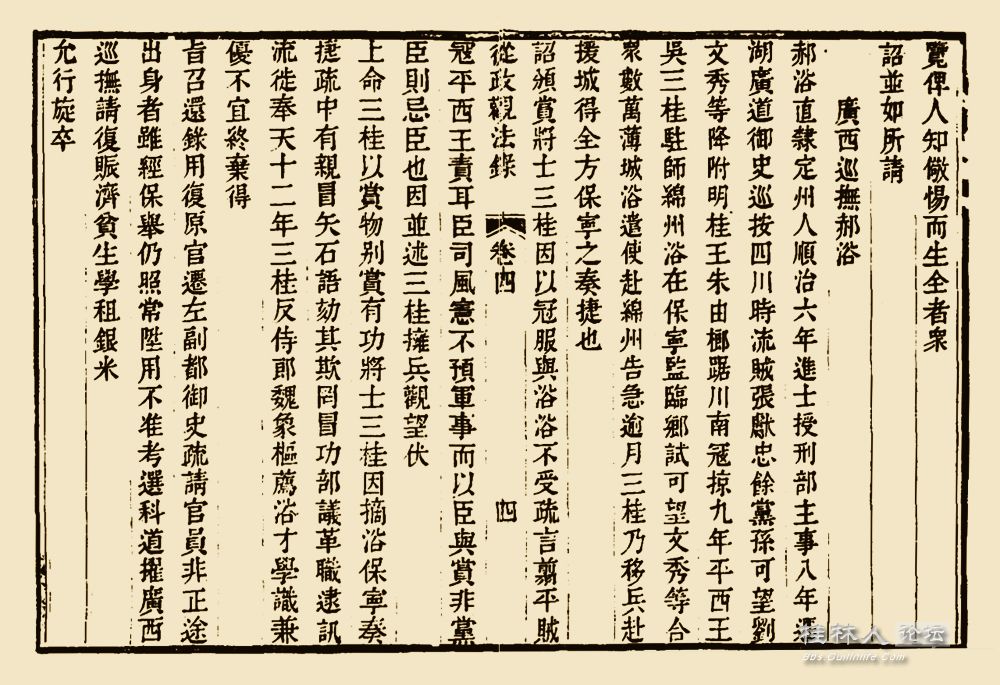 覽俾人知儆惕而生全者衆
詔並如所請
廣西巡撫郝浴
郝浴直隸定州人順治六年進士授刑部主事八年遷
湖廣道御史巡按四川時流賊張獻忠餘黨孫可望劉
文秀等降附明桂王朱由榔踞川南寇掠九年平西王
吳三桂駐師綿州浴在保寧監臨鄉試可望文秀等合
衆數萬薄城浴遣使赴綿州告急逾月三桂乃移兵赴
援城得全方保寧之奏捷也
詔頒賞將士三桂因以冠服與浴浴不受疏言翦平賊
從政觀法錄 卷四 四
寇平西王責耳臣司風憲不預軍事而以臣與賞非黨
臣則忌臣也因並述三桂擁兵觀望伏
上命三桂以賞物別賞有功將士三桂因摘浴保寧奏
捷疏中有親冒矢石語劾其欺罔冒功部議革職逮訊
流徙奉天十二年三桂反侍郎魏象樞薦浴才學識兼
優不宜終棄得
旨召還錄用復原官遷左副都御史疏請官員非正途
出身者雖經保舉仍照常陞用不准考選科道擢廣西
巡撫請復賑濟貧生學租銀米
允行旋卒
桂林人 论坛
bbs.Guilinlife.com